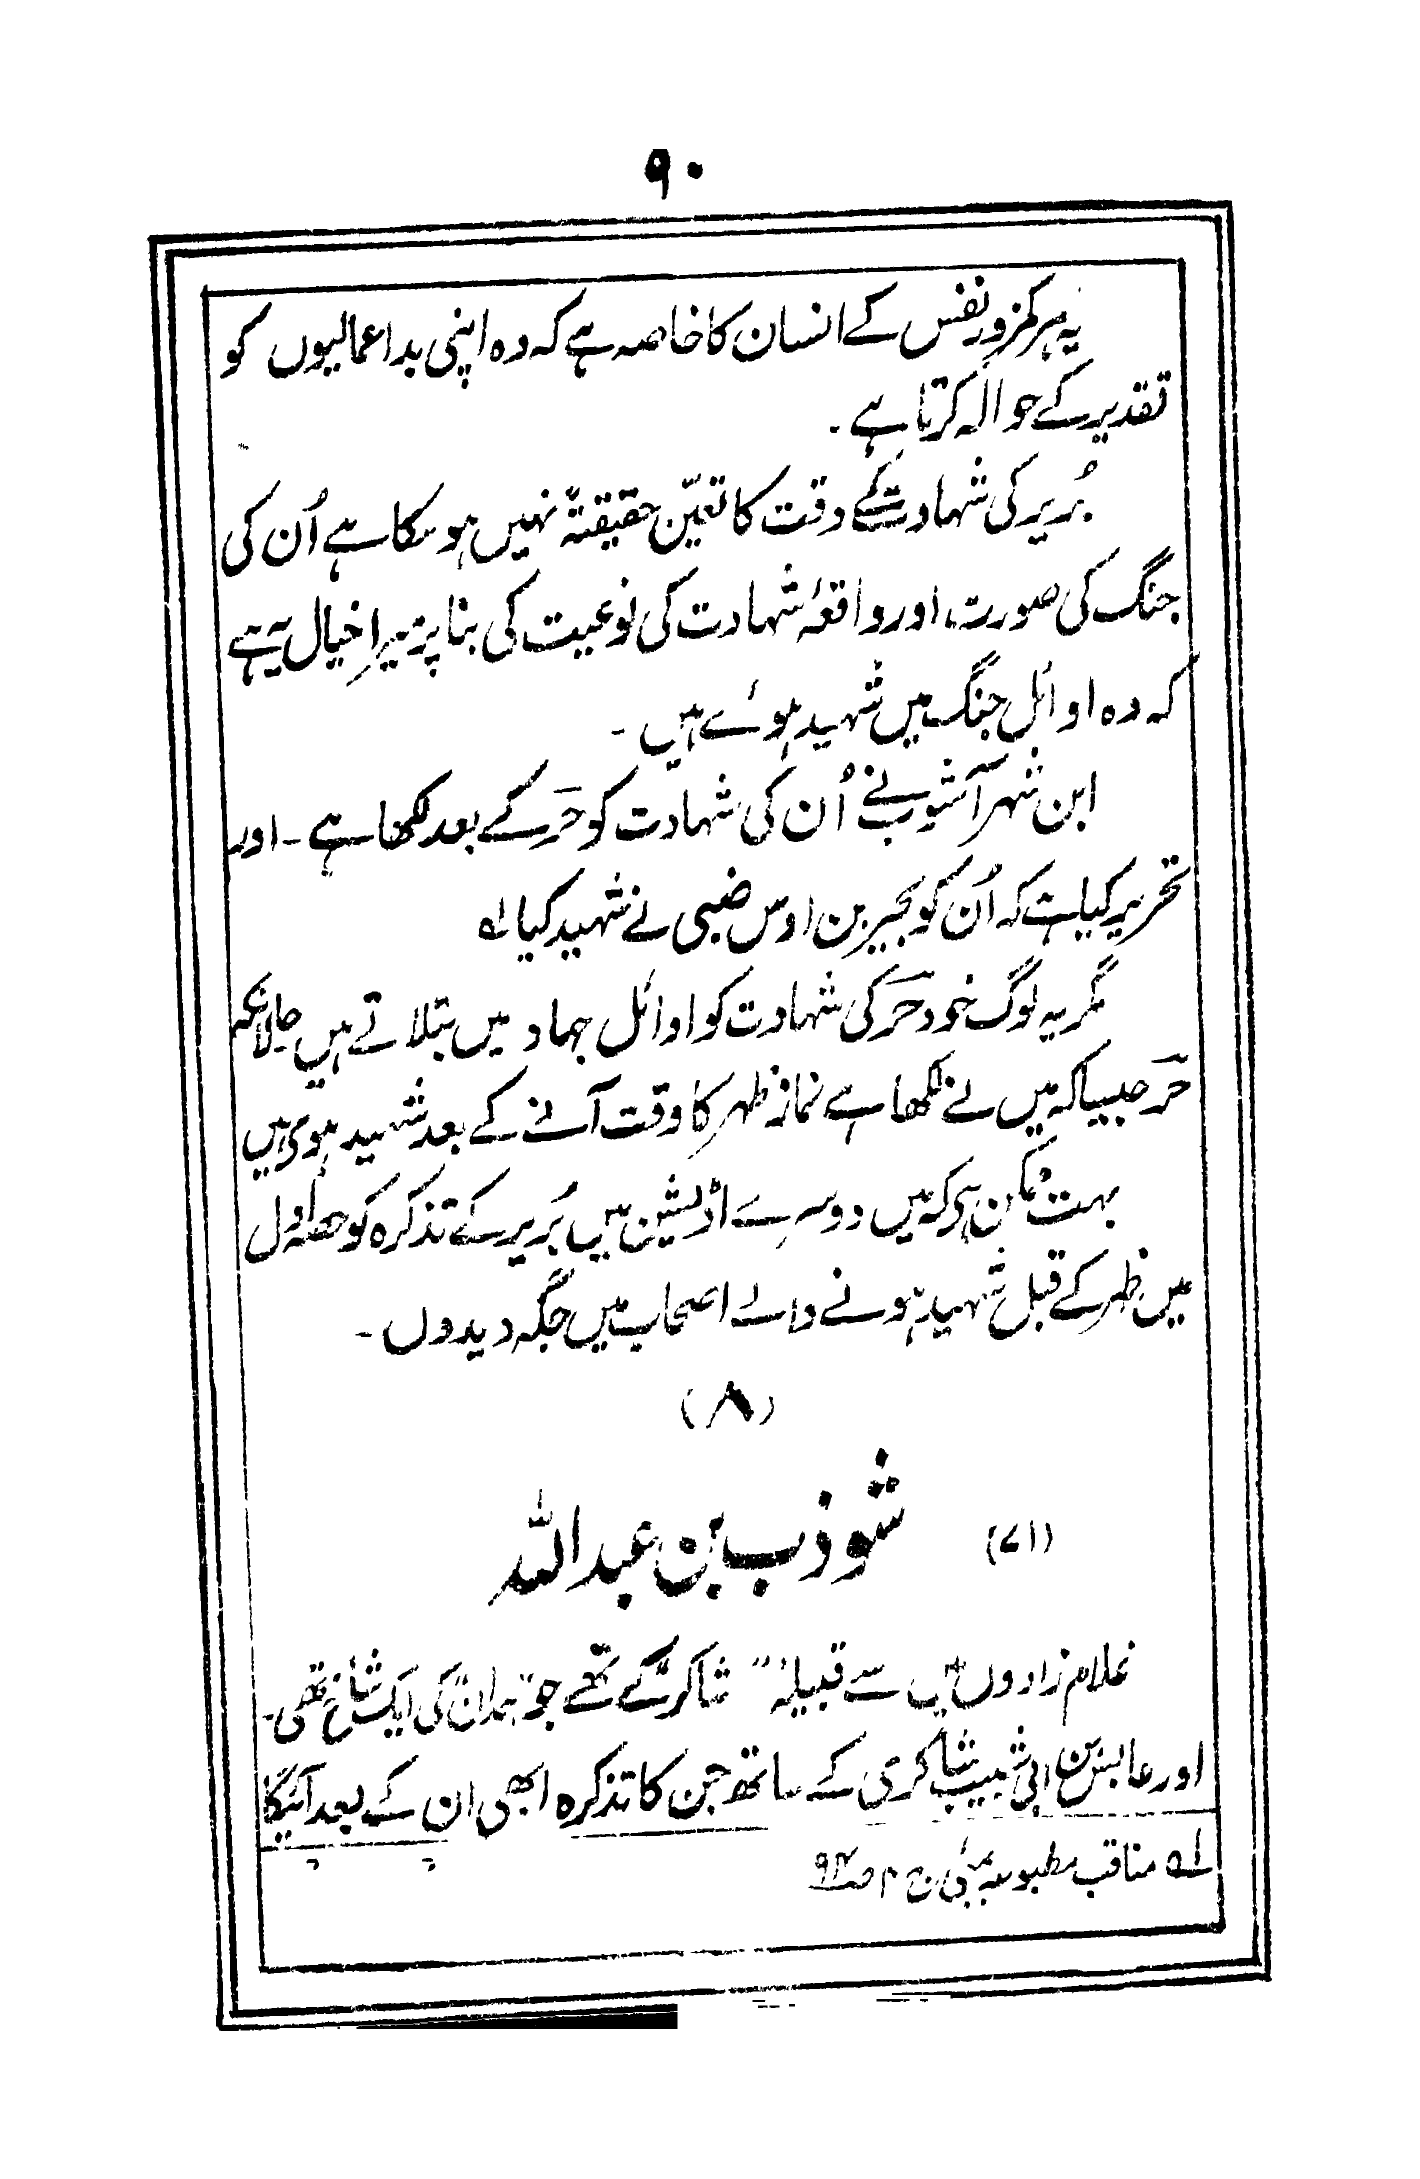 ۹۰
یہ ہر کمزور نفس کے انسان کا خاصہ ہے کہ وہ اپنی بد اعمالیوں کو
تقدیر کے حوالہ کرتا ہے ۔
بُریر کی شہادت کے وقت کا تعیّن حقیقتہً نہیں ہو سکا ہے اُن کی
جنگ کی صورت، اور واقعۂ شہادت کی نوعیت کی بنا پر میرا خیال یہ ہے
کہ وہ اوائل جنگ میں شہید ہوئے ہیں ۔
ابن شہر آشوب نے اُن کی شہادت کو حُر کے بعد لکھا ہے ۔ اور
تحریر کیا ہے کہ اُن کو بجیر بن اوس ضبی نے شہید کیا لہ
مگر یہ لوگ خود حُر کی شہادت کو اوائل جہاد میں بتلاتے ہیں حالانکہ
حُر جیسا کہ میں نے لکھا ہے نماز ظہر کا وقت آنے کے بعد شہید ہوئے ہیں
بہت ممکن ہے کہ میں دوسرے اڈیشن میں بُریر کے تذکرہ کو حصہ اول
میں ظہر کے قبل شہید ہونے والے اصحاب میں جگہ دیدوں ۔
(۸)
(۷۱) شوذب بن عبداللہ
غلام زادوں میں سے قبیلۂ "شاکر" کے تھے جو "ہمدان" کی ایک شاخ تھی ۔
اور عابس بن ابی شبیب شاکری کے ساتھ جن کا تذکرہ ابھی ان کے بعد آئیگا
لہ مناقب مطبوعہ بمبئی ج ۴